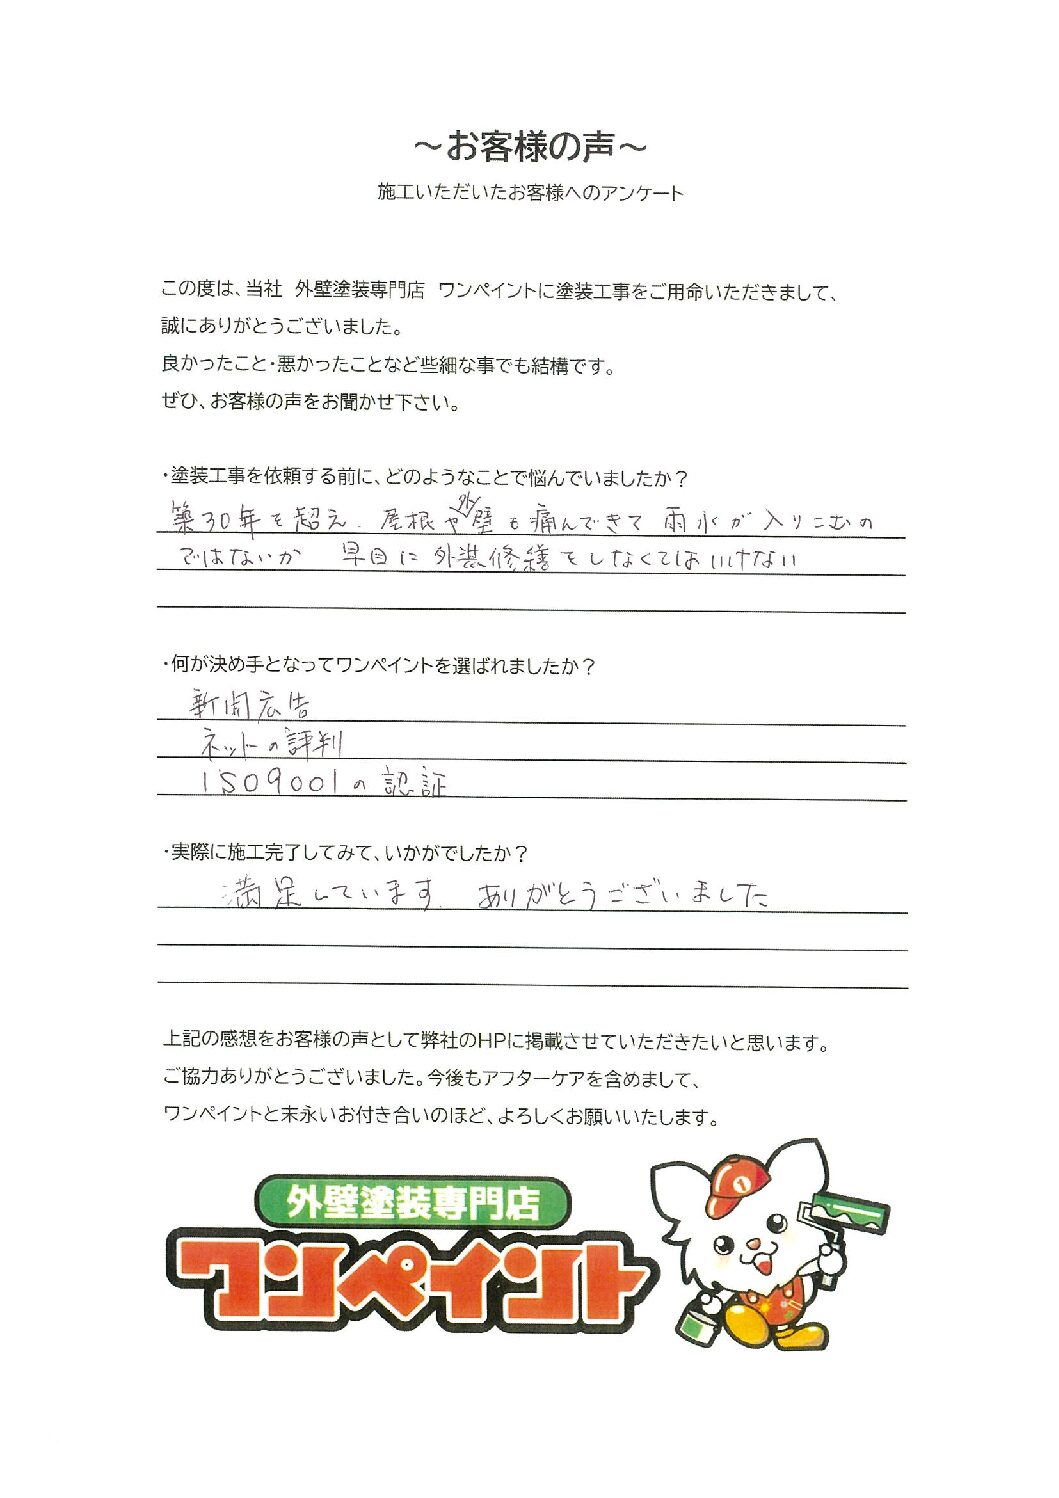 ～お客様の声～
施工いただいたお客様へのアンケート
この度は、当社　外壁塗装専門店　ワンペイントに塗装工事をご用命いただきまして、
誠にありがとうございました。
良かったこと・悪かったことなど些細な事でも結構です。
ぜひ、お客様の声をお聞かせ下さい。
・塗装工事を依頼する前に、どのようなことで悩んでいましたか？
築30年を超え、屋根や外壁も痛んできて 雨水が入りこむの
ではないか　早目に外装修繕をしなくてはいけない
・何が決め手となってワンペイントを選ばれましたか？
新聞広告
ネットの評判
ISO9001の認証
・実際に施工完了してみて、いかがでしたか？
満足しています。ありがとうございました
上記の感想をお客様の声として弊社のHPに掲載させていただきたいと思います。
ご協力ありがとうございました。今後もアフターケアを含めまして、
ワンペイントと末永いお付き合いのほど、よろしくお願いいたします。
外壁塗装専門店
ワンペイント
1